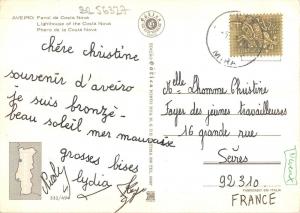 BL 56327
AVEIRO: Farol da Costa Nova
Lighthouse of the Costa Nova
Phare de la Costa Nova
chére christine
souvenir d'aveiro
je suis bronzé
beau soleil mer mauvaise
grosses bises
lydia
331/494
MIRA
elle Lhomme Christine
Foyer des jeunes travailleuses
16 grande rue
Sèvres
92310
FRANCE
FABRICADO EM ITALIA